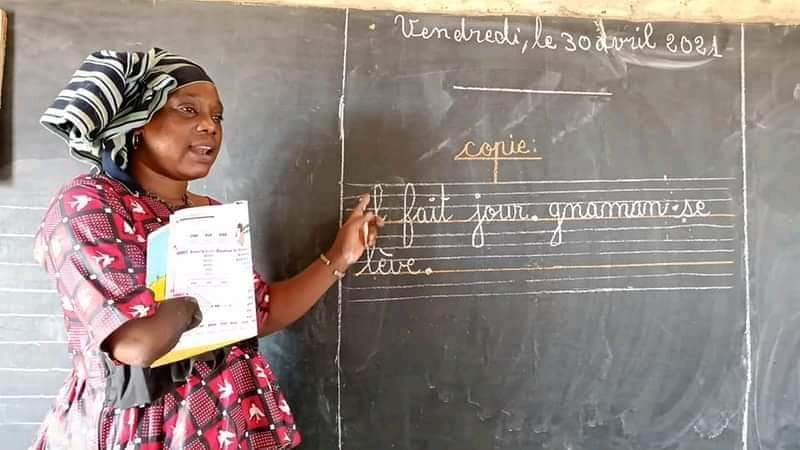 Vendredi, le 30 avril 2021
copie:
il fait jour. gnaman se
lève.